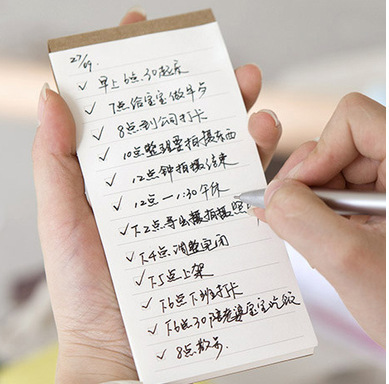 27/09.
✓ 早上6点30起床
✓ 7点给宝宝做早点
✓ 8点到公司打卡
✓ 10点整理要拍摄东西
✓ 12点钟拍摄结束
✓ 12点—1:30午休
✓ 下2点导出拍摄照
✓ 下4点调整完图
✓ 下5点上架
✓ 下6点下班打卡
✓ 下6点30陪老婆宝宝吃饭
✓ 8点散步.